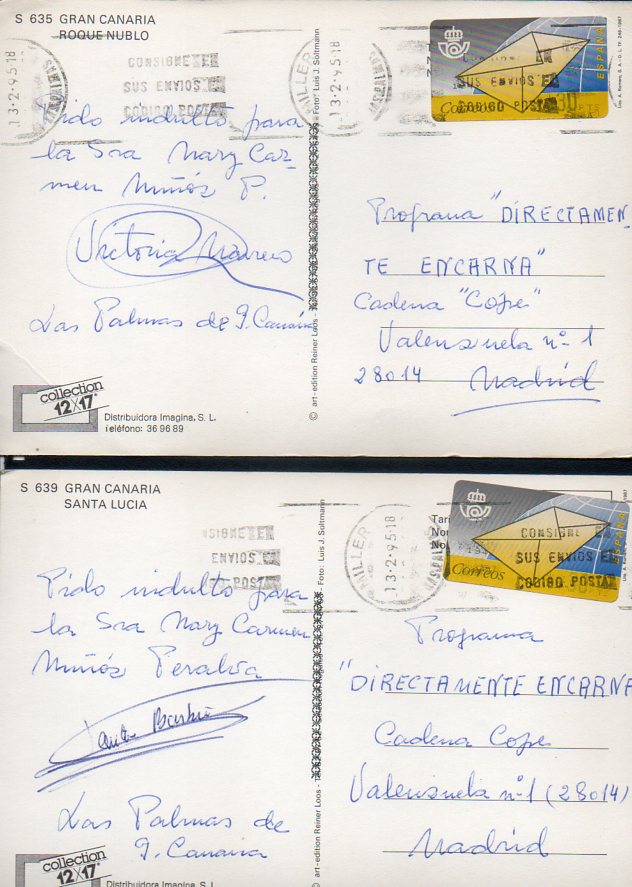 S 635 GRAN CANARIA
ROQUE NUBLO
CONSIGNE EN
SUS ENVIOS EL
CODIGO POSTAL
MILLER
13-2-95-18
Correos
ESPAÑA
Pido indulto para
la Sra Mary Car-
men Muñós P.
Victoria Marrero
Las Palmas de G. Canaria
Programa "DIRECTAMEN-
TE ENCARNA"
Cadena "Cope"
Valensuela nº 1
28014 Madrid
© art-edition Reiner Loos
Foto: Luis J. Soltmann
collection
12x17
Distribuidora Imagina, S. L.
Teléfono: 36 96 89
S 639 GRAN CANARIA
SANTA LUCIA
CONSIGNE EN
SUS ENVIOS EL
CODIGO POSTAL
MILLER
13-2-95-18
Correos
ESPAÑA
Pido indulto para
la Sra Mary Carmen
Muñós Peralva
Las Palmas de
G. Canaria
Programa
"DIRECTAMENTE ENCARNA
Cadena Cope
Valensuela nº 1 (28014)
Madrid
© art-edition Reiner Loos
Foto: Luis J. Soltmann
collection
12x17
Distribuidora Imagina, S. L.